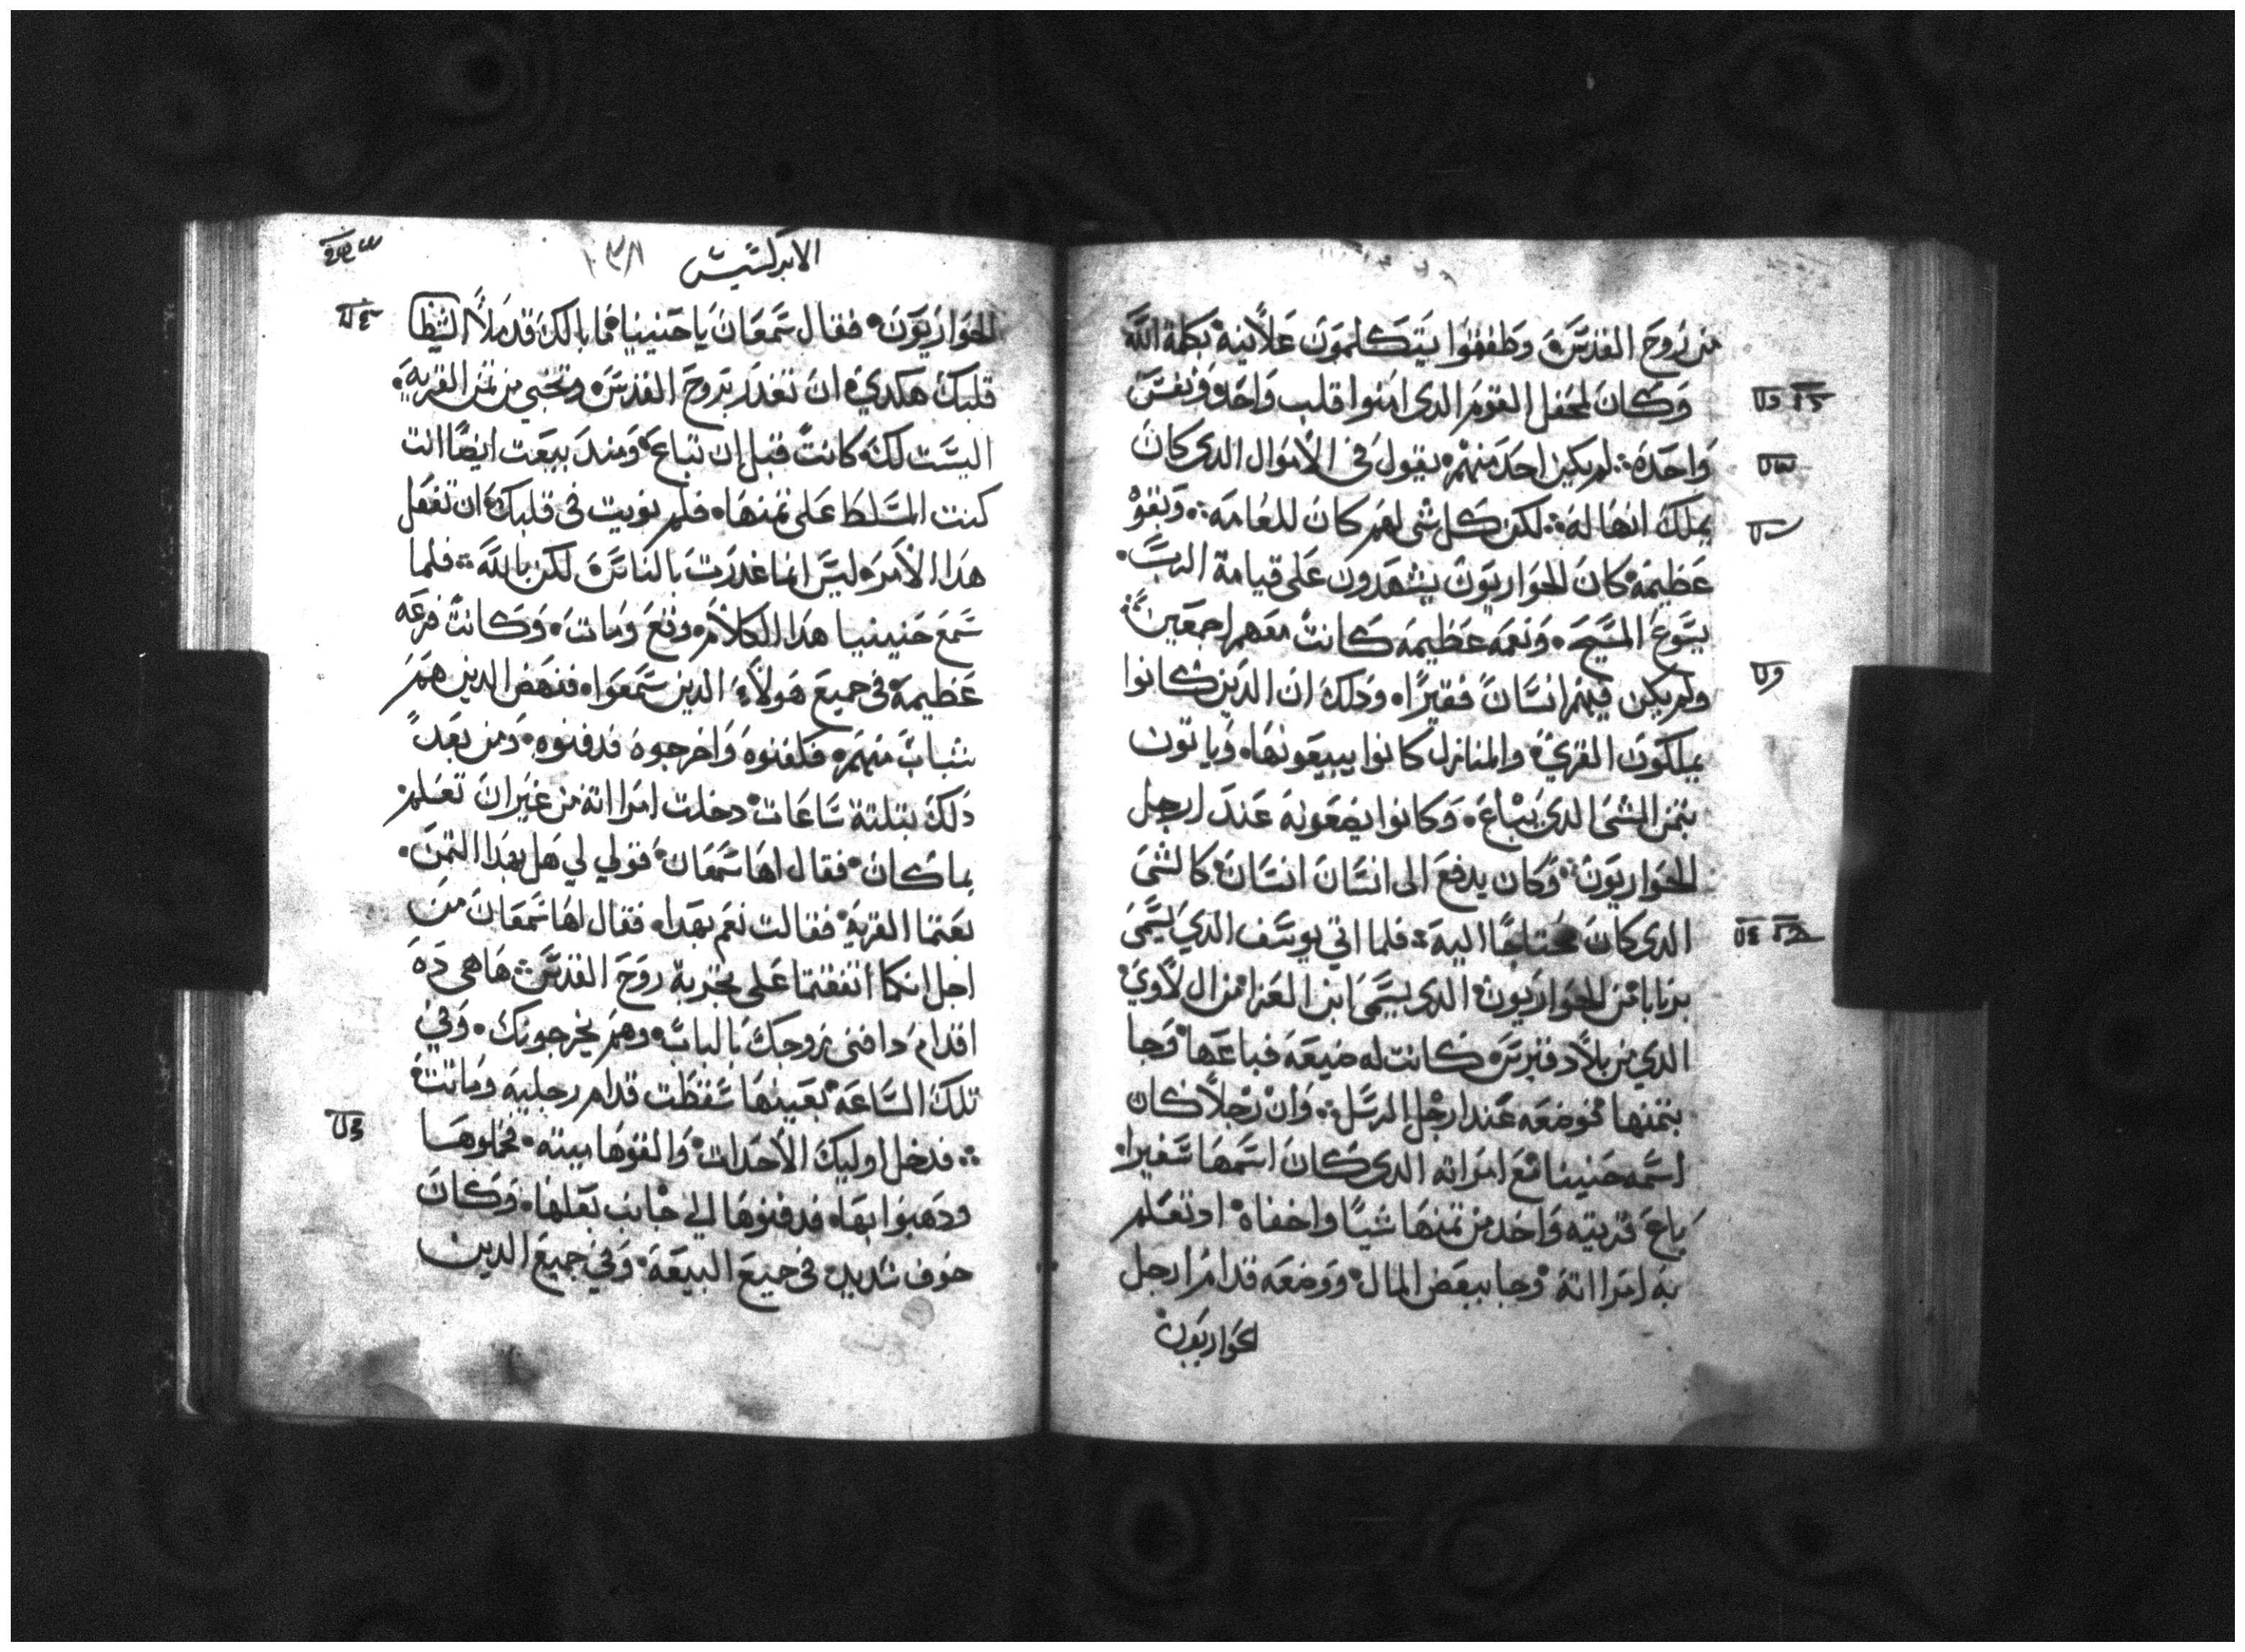 من روح القدس وطفقوا يتكلمون علانية بكلمة الله
وكان لمحفل القوم الدى امنوا قلب واحد ونفس
واحدة ∴ لم يكين احد منهم يقول فى الاموال الدى كان
يملك انها له ∴ لكن كل شى لهم كان للعامة ∴ وبقوة
عظيمة كان الحواريون يشهدون على قيامة الرب
يسوع المسيح ونعمه عظيمه كانت معهم اجمعين
ولم يكن فيهم انسان فقيرا وذلك ان الدين كانوا
يملكون القري والمنازل كانوا يبيعونها وياتون
بتمن الشى الدى يباع وكانوا يضعونه عند ارجل
الحواريون وكان يدفع الى انسان انسان كالشى
الدى كان محتاجا اليه فلما اتي يوسف الدي يسمى
برنابا من الحواريون الدى يسمى ابن العزا من ال لاوي
الدي من بلاد قبرس كانت له ضيعة فباعها وجا
بتمنها فوضعه عند ارجل الرسل ∴ وان رجلا كان
اسمه حنينا مع امراته الدى كان اسمها سفيرا
باع قريته واخد من تمنها شيا واخفاه اد تعلم
به امرااته وجا ببعض المال ووضعه قدام ارجل
لحواريون
الابركسيس
الحواريون فقال سمعان يا حنينيا فما بالك قد ملا الشيطا
قلبك هكدي ان تغدر بروح القدس وتخبي من تمن القرية
اليست لك كانت قبل ان تباع ومند بيعت ايضا انت
كنت المسلط على تمنها فلم نويت فى قلبك ان تفعل
هدا الامر ليس انما غدرت بالناس لكن بالله ∴ فلما
سمع حنينيا هدا الكلام وقع ومات وكانت فزعه
عظيمة فى جميع هولاء الدين سمعوا فنهض الدين هم
شباب منهم فكفنوه واخرجوه فدفنوه ومن بعد
دلك بتلتة ساعات دخلت امرااته من غير ان تعلم
بما كان فقال لها سمعان قولي لي هل بهدا التمن
بعتما القرية فقالت نعم بهدا فقال لها سمعان من
اجل انكما اتفقتما على تجربة روح القدس ها هى ده
اقدام دافنى زوجك بالباب وهم يخرجونك وفي
تلك الساعة بعينها سقطت قدام رجليه وماتت
∴ فدخل اوليك الاحدات والفوها ميته فحملوها
ودهبوا بها فدفنوها الي جانب بعلها وكان
خوف شديد فى جميع البيعة وفي جميع الدين